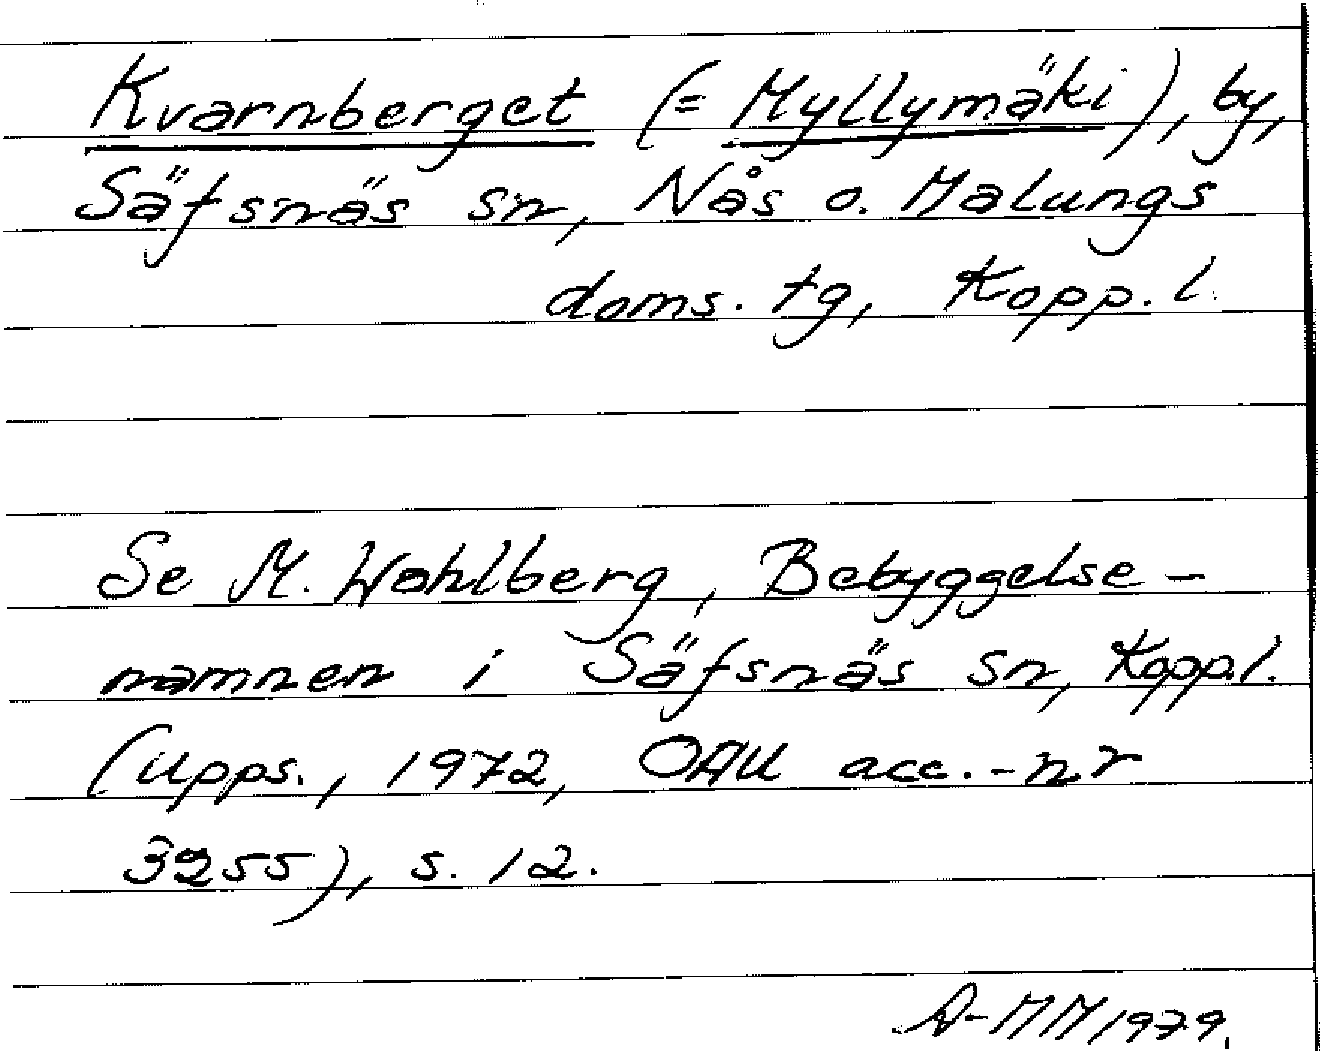 Kvarnberget (= Myllymäki), by,
Säfsnäs sn, Nås o. Malungs
doms. tg, Kopp. l.
Se M. Wahlberg, Bebyggelse-
namnen i Säfsnäs sn, Kopp. l.
(Upps., 1972, OAU acc.-nr
3255), s. 12.
A-MM 1979.